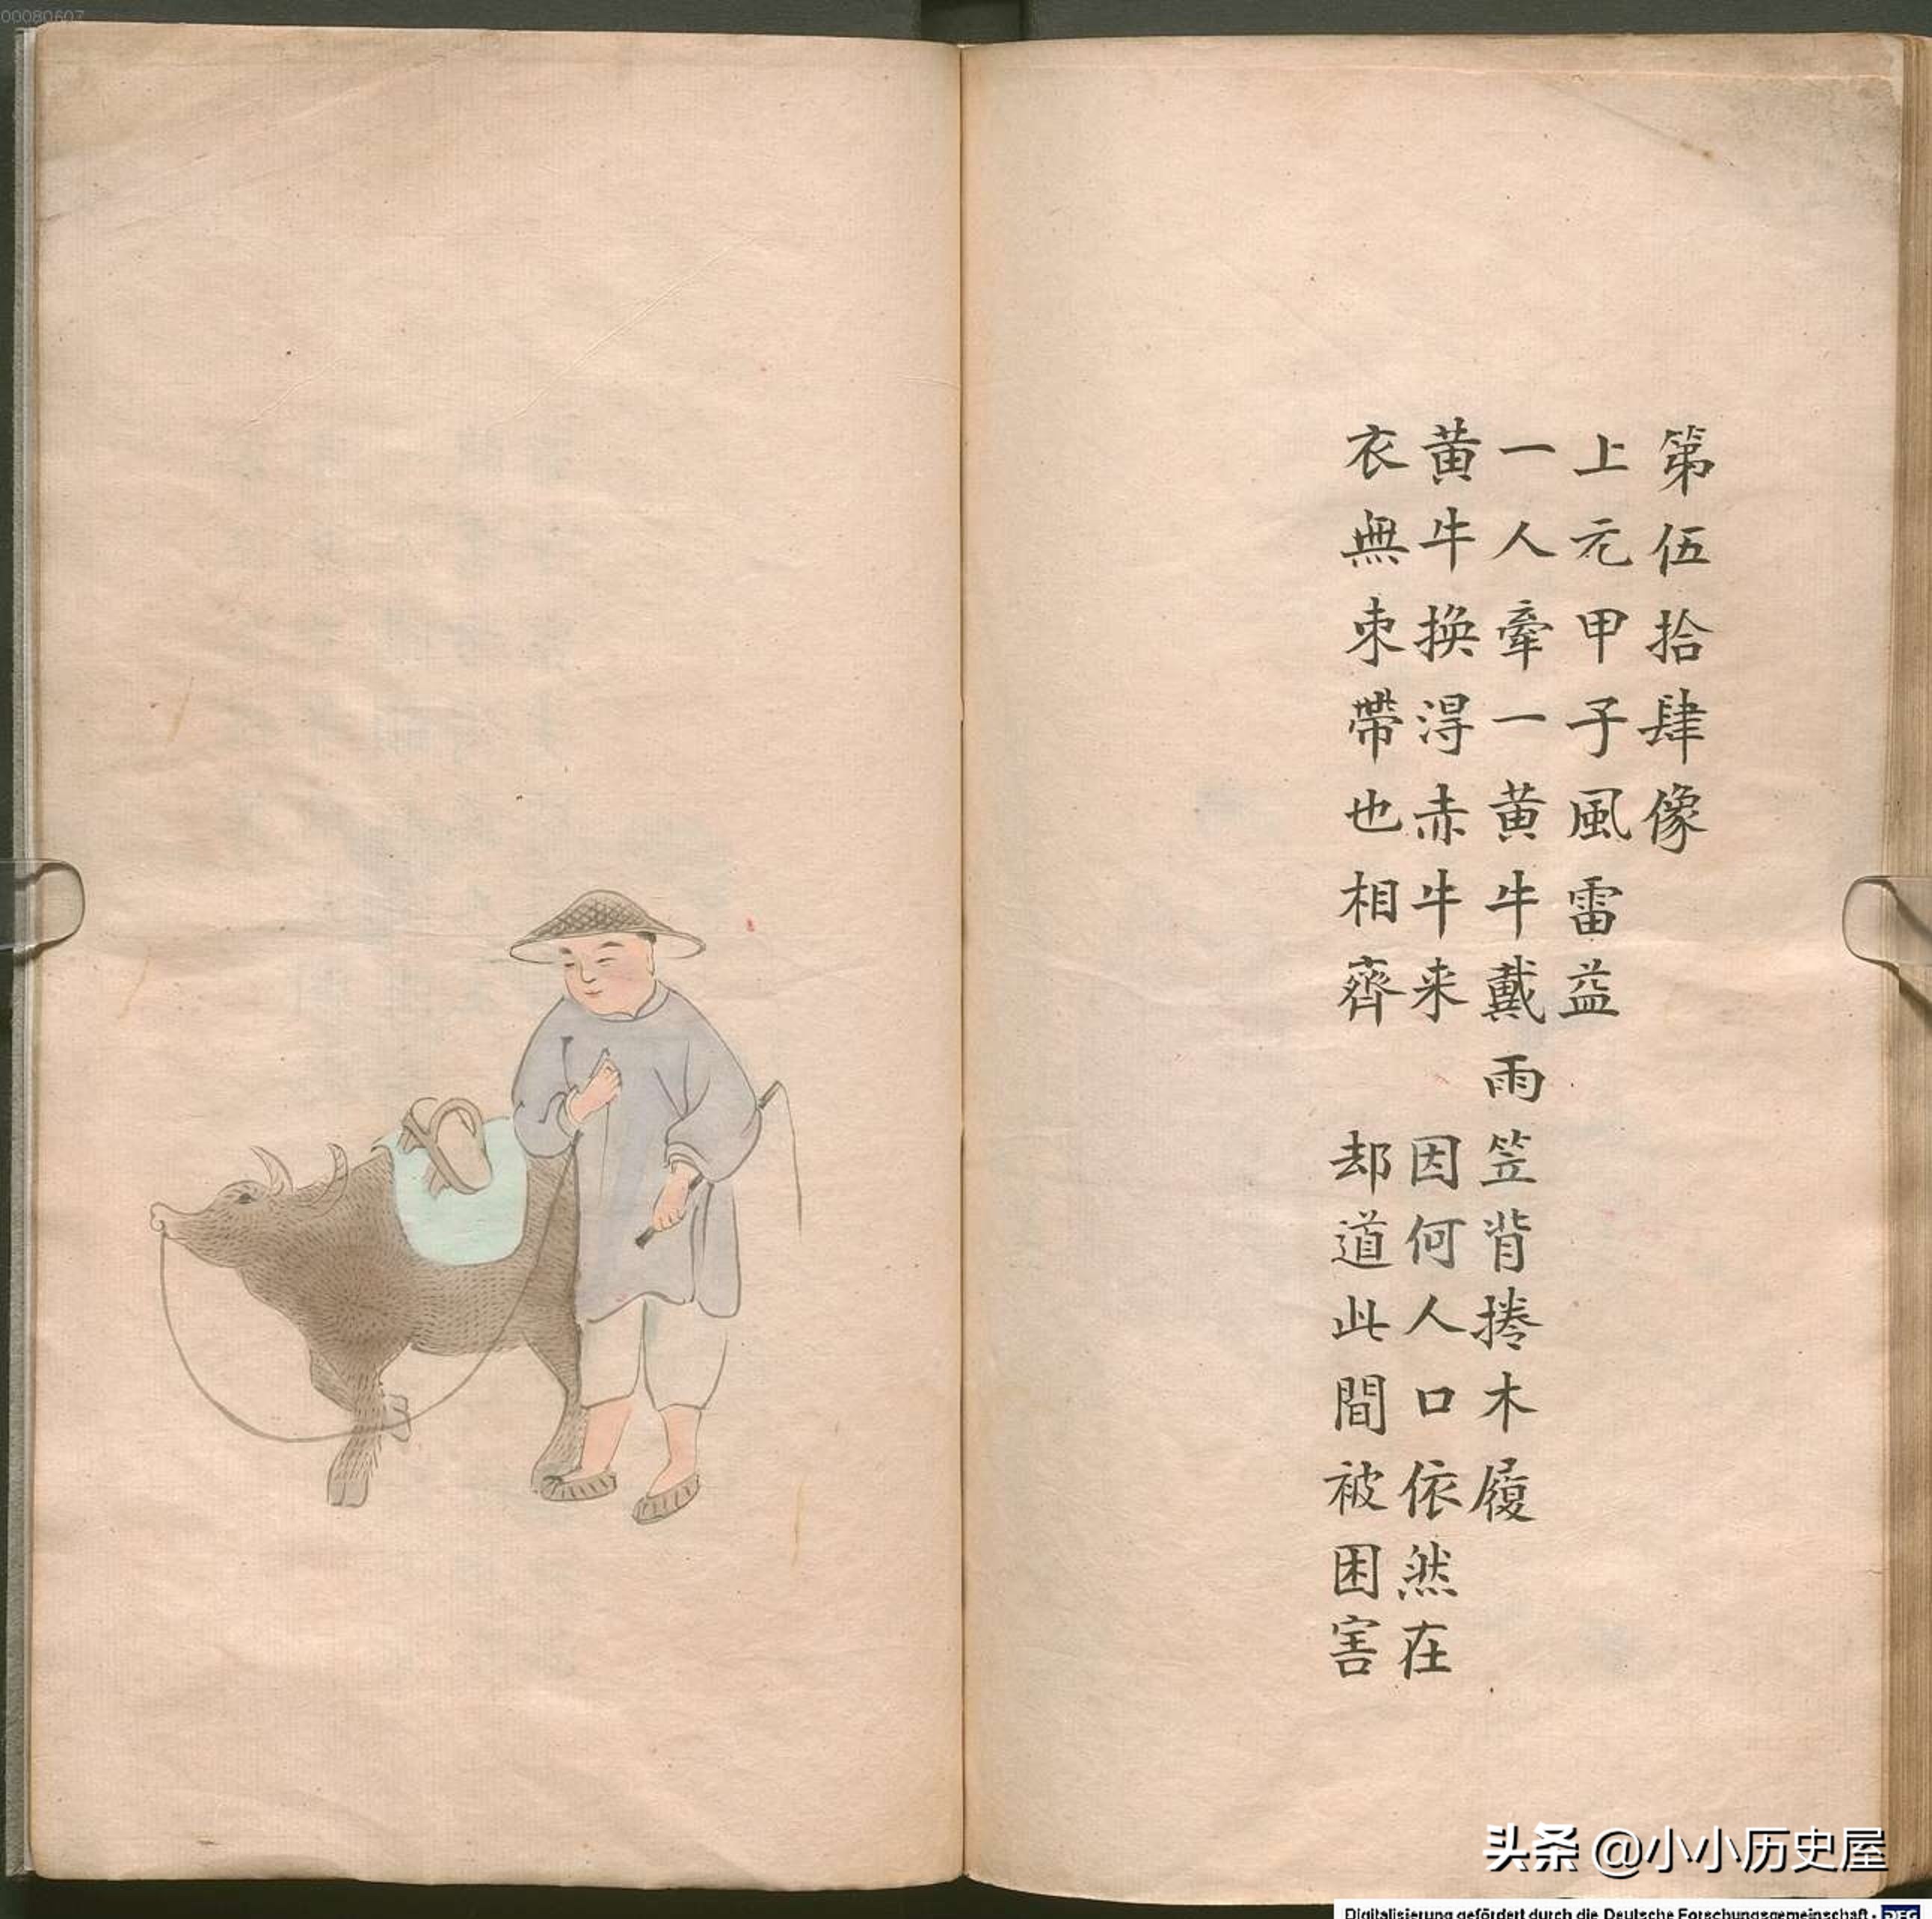 00080607
第伍拾肆像
上元甲子風雷益
一人牽一黄牛戴雨笠背捲木履
黄牛換得赤牛来 因何人口依然在
衣無束帶也相齊 却道此間被困害
头条 @小小历史屋
Digitalisierung gefördert durch die Deutsche Forschungsgemeinschaft · DFG